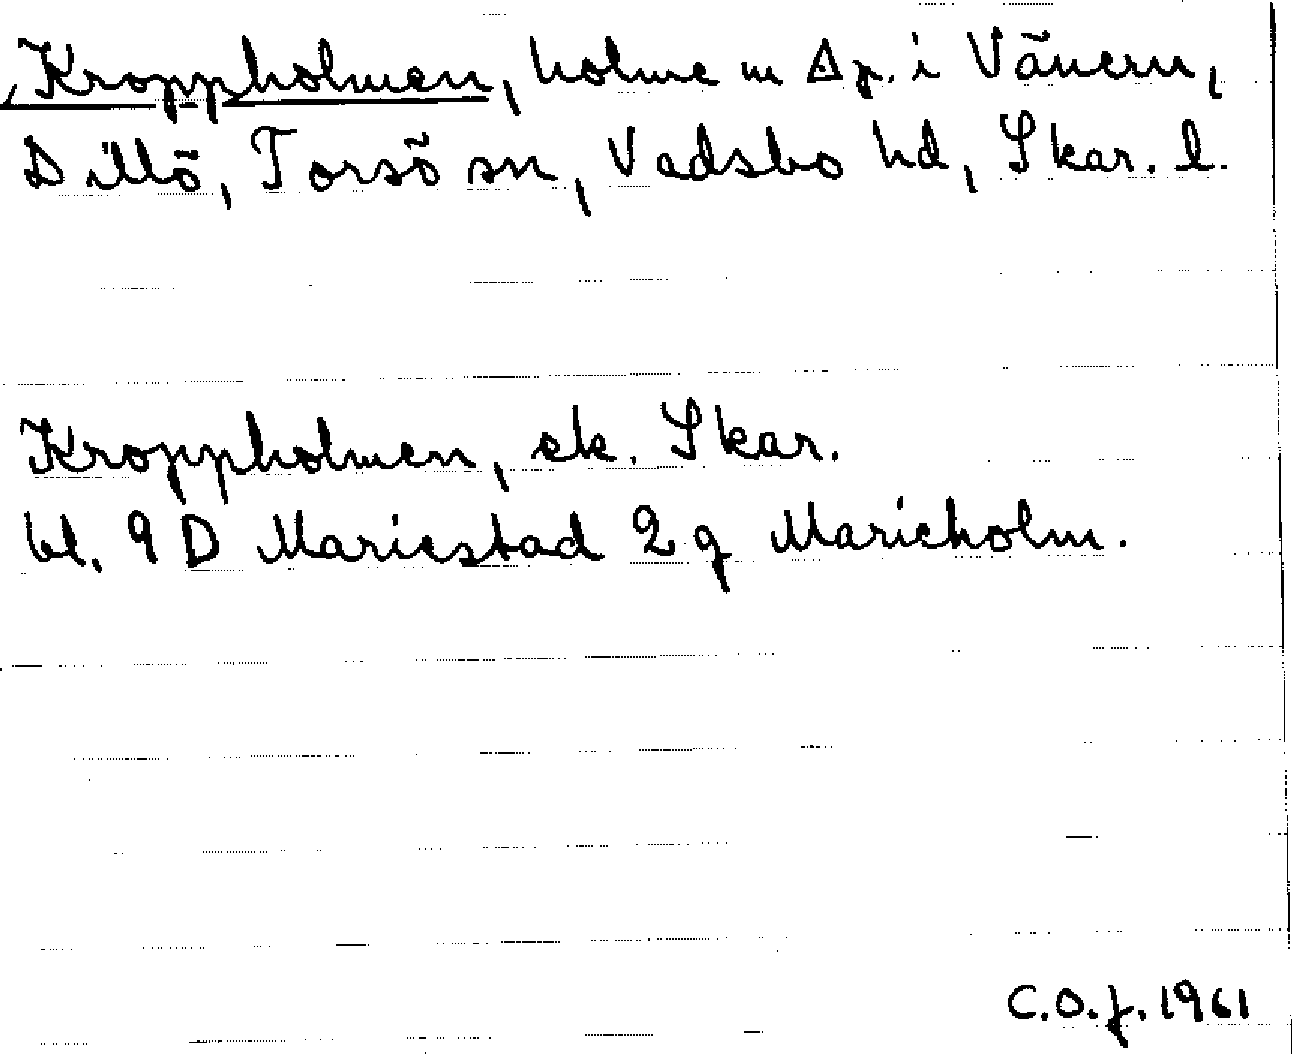 Kroppholmen, holme m Δp. i Vänern,
Dillö, Torsö sn, Vadsbo hd, Skar. l.
Kroppholmen, ek. Skar.
bl. 9 D Mariestad 2 g Marieholm.
C.O.f. 1961